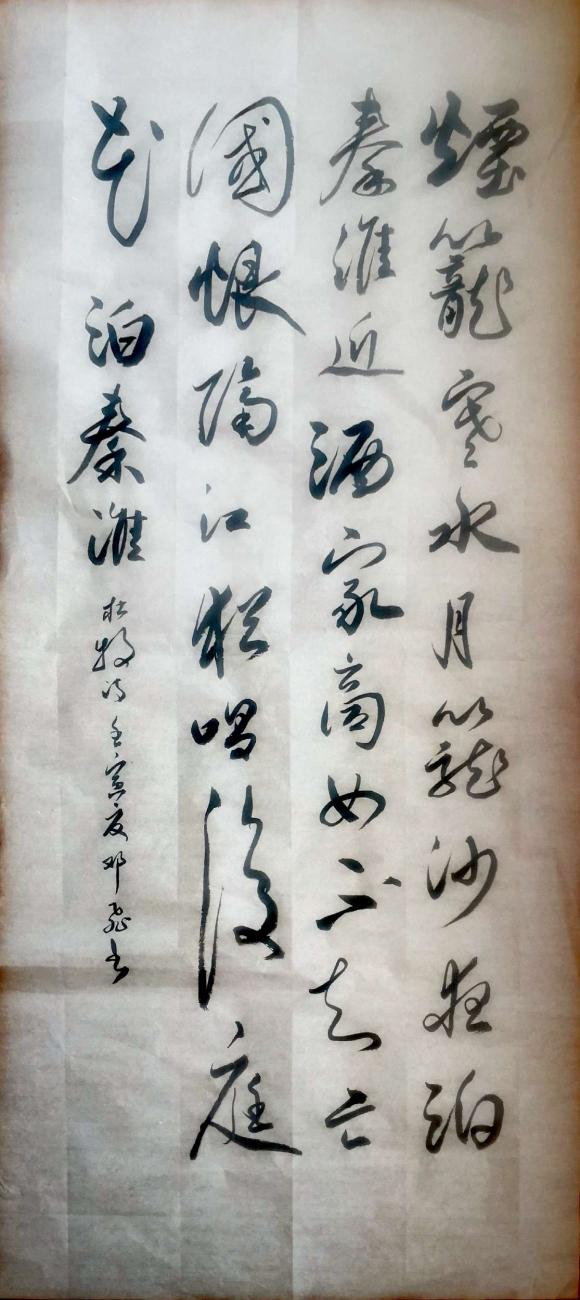 煙籠寒水月籠沙夜泊
秦淮近酒家商女不知亡
國恨隔江猶唱後庭
花 泊秦淮 杜牧詩 壬寅夏邓飛书